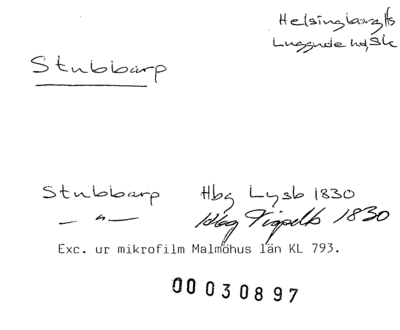 Helsingborg Hs
Luggude hd, Sk
Stubbarp
Stubbarp Hbg Lysb 1830
— " — Hbg Tiopelb 1830
Exc. ur mikrofilm Malmöhus län KL 793.
00030897